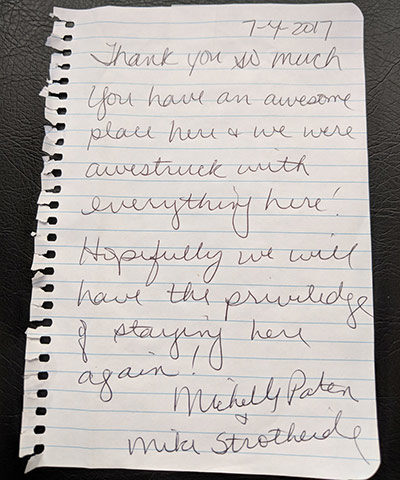 7-4-2017
Thank you so much
You have an awesome
place here & we were
awestruck with
everything here!
Hopefully we will
have the priviledge
of staying here
again!
Michelle Paten
&
Mike